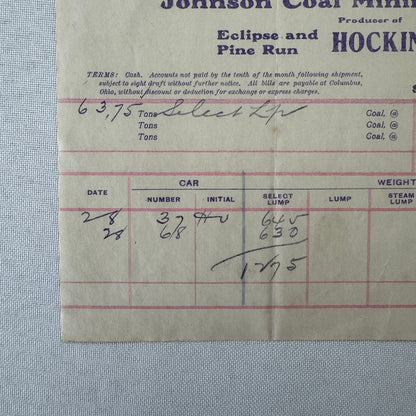 Johnson Coal Mini
Producer of
Eclipse and
Pine Run
HOCKIN
TERMS: Cash. Accounts not paid by the tenth of the month following shipment,
subject to sight draft without further notice. All bills are payable at Columbus,
Ohio, without discount or deduction for exchange or express charges.
S
63,75 Tons Select Lp Coal, @
Tons Coal, @
Tons Coal, @
DATE CAR WEIGHT
NUMBER INITIAL SELECT LUMP LUMP STEAM LUMP
28 37 HV 645
28 68 630
1275